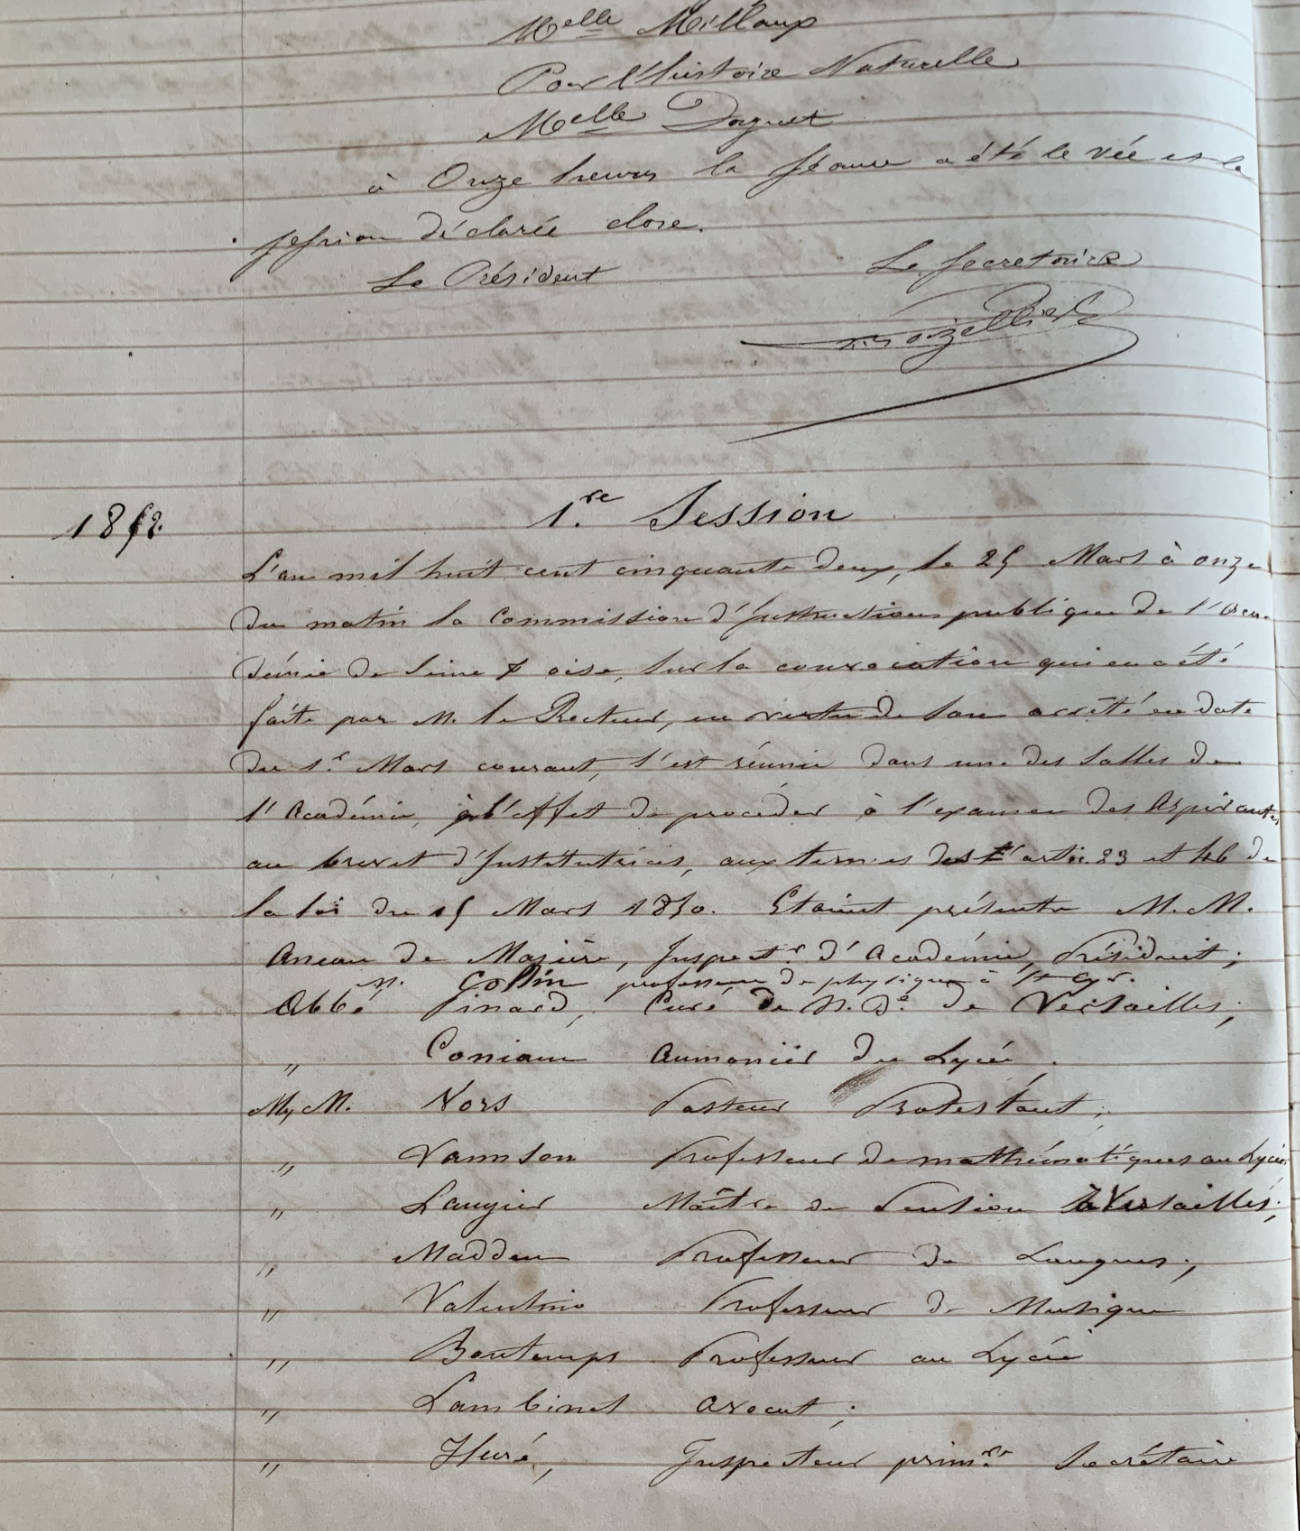 Melle Millaux
Pour l'histoire Naturelle
Melle Doguet
à Onze heures la séance a été levée et la
session déclarée close.
Le Président Le Secrétaire
1852. 1.re Session
L'an mil huit cent cinquante deux, le 25 Mars à onze
du matin la Commission d'Instruction publique de l'Aca-
démie de Seine & oise, sur la convocation qui en a été
faite par M. le Recteur, en vertu de son arrêté en date
du 1.r Mars courant, s'est réunie dans une des salles de
l'Académie, à l'effet de procéder à l'examen des Aspirantes
au brevet d'Institutrices, aux termes des artic. 23 et 46 de
la loi du 15 Mars 1850. Etaient présents M.M.
Anceau de Masière, Inspect.r d'Académie, Président;
M. Collin professeur de physique à St Cyr.
Abbé Pinard, Curé de N. D.e de Versailles;
" Coniam Aumonier du Lycée,
M.M. Vors Pasteur Protestant;
" Vannson Professeur de mathématiques au Lycée
" Laugier Maître de Pension à Versailles;
" Madden Professeur de Langues;
" Valentino Professeur de Musique
" Bontemps Professeur au Lycée
" Lambinet avocat;
" Huré, Inspecteur prim.re Secrétaire